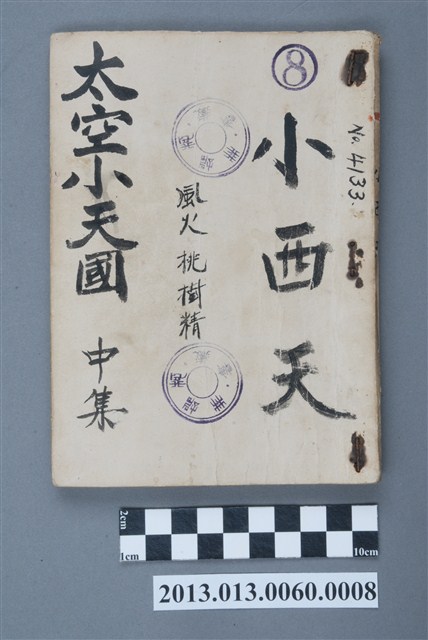 ⑧
No. 4133.
小西天
風火桃樹精
太空小天國
中集
2cm
1cm
10cm
2013.013.0060.0008